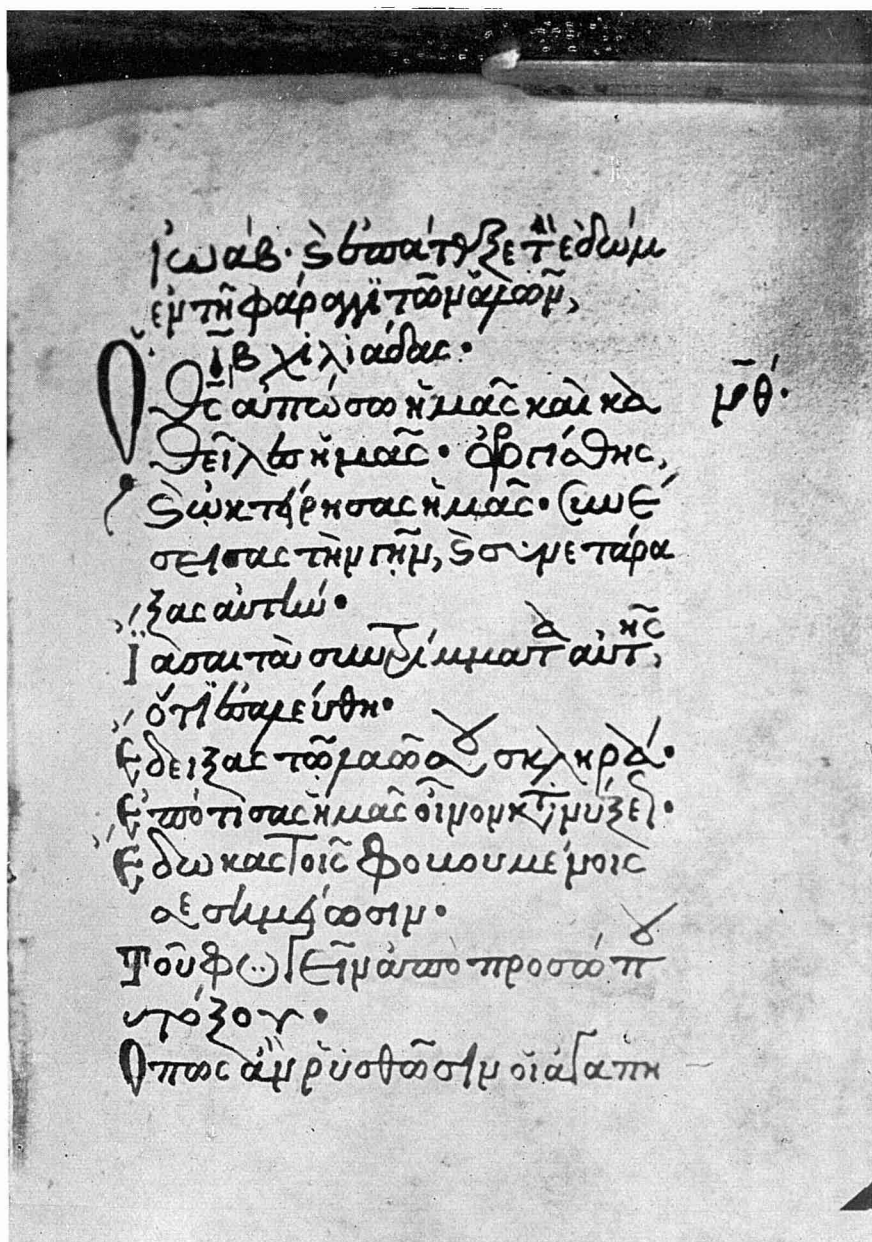 ἰωάβ· καὶ ἐπάταξε τὸν ἐδώμ
ἐν τῆ φάραγγι τῶν ἁλῶν,
ιβ χιλιάδας·
Ὁ θς ἀπώσω ἡμᾶς καὶ κα
θεῖλες ἡμᾶς· ὠργίσθης,
καὶ ὠκτείρησας ἡμᾶς· Συνέ
σεισας τὴν γῆν, καὶ συνετάρα
ξας αὐτήν·
Ἴασαι τὰ συντρίμματα αὐτῆς,
ὅτι ἐσαλεύθη·
Ἔδειξας τῶ λαῶ σου σκληρά·
Ἐπότισας ἡμᾶς οἶνον κατανύξεως·
Ἔδωκας τοῖς φοβουμένοις
σε σημείωσιν·
Τοῦ φυγεῖν ἀπὸ προσώπου
τόξου·
Ὅπως ἂν ῥυσθῶσιν οἱ ἀγαπη